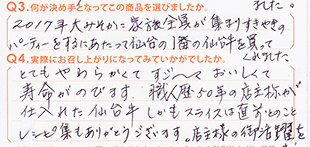 れた。
Q3.何が決め手となってこの商品を選びましたか。
2017年大みそかに家族全員が集まりすきやきの
パーティーをするにあたって仙台の1番の仙台牛を買って
くれました
Q4.実際にお召し上がりになってみていかがでしたか。
とてもやわらかくて すご~く おいしくて
寿命がのびます。職人歴50年の店主様が
仕入れた仙台牛 しかもスライスは直前とのこと
レシピ集もありがとうございます。店主様の御活躍を